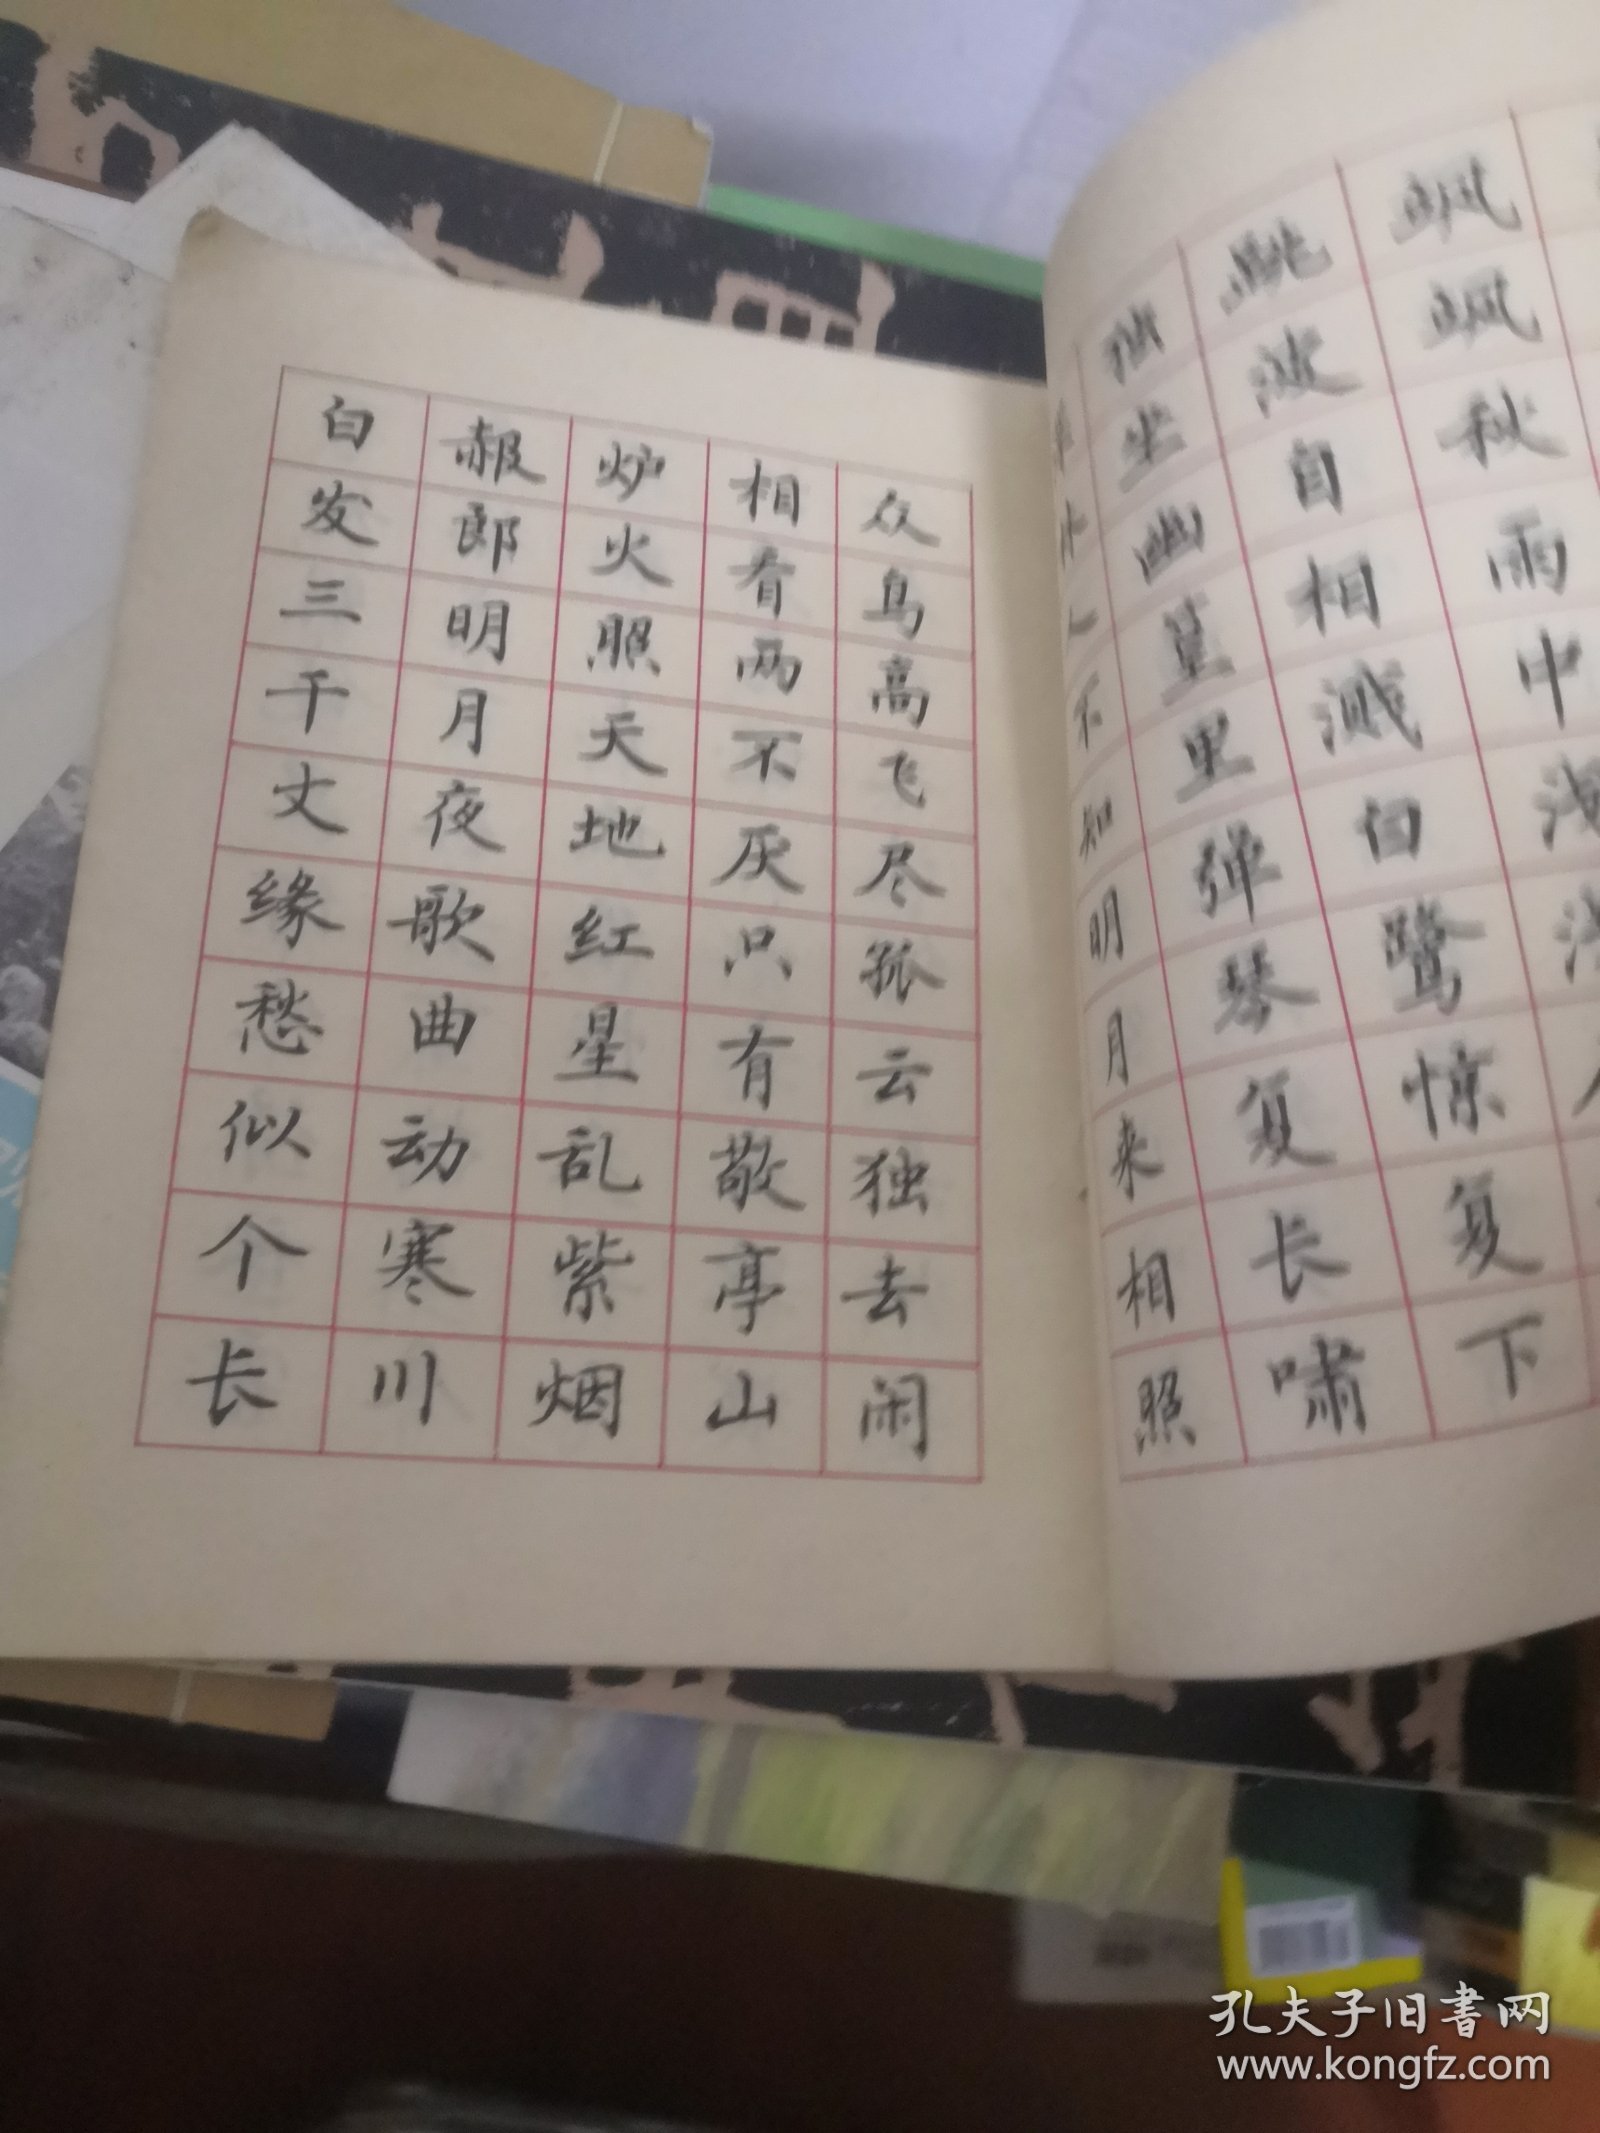 飒飒秋雨中浅浅
跳波自相溅白鹭惊复下
独坐幽篁里弹琴复长啸
不知明月来相照
众鸟高飞尽孤云独去闲
相看两不厌只有敬亭山
炉火照天地红星乱紫烟
赧郎明月夜歌曲动寒川
白发三千丈缘愁似个长
孔夫子旧书网
www.kongfz.com